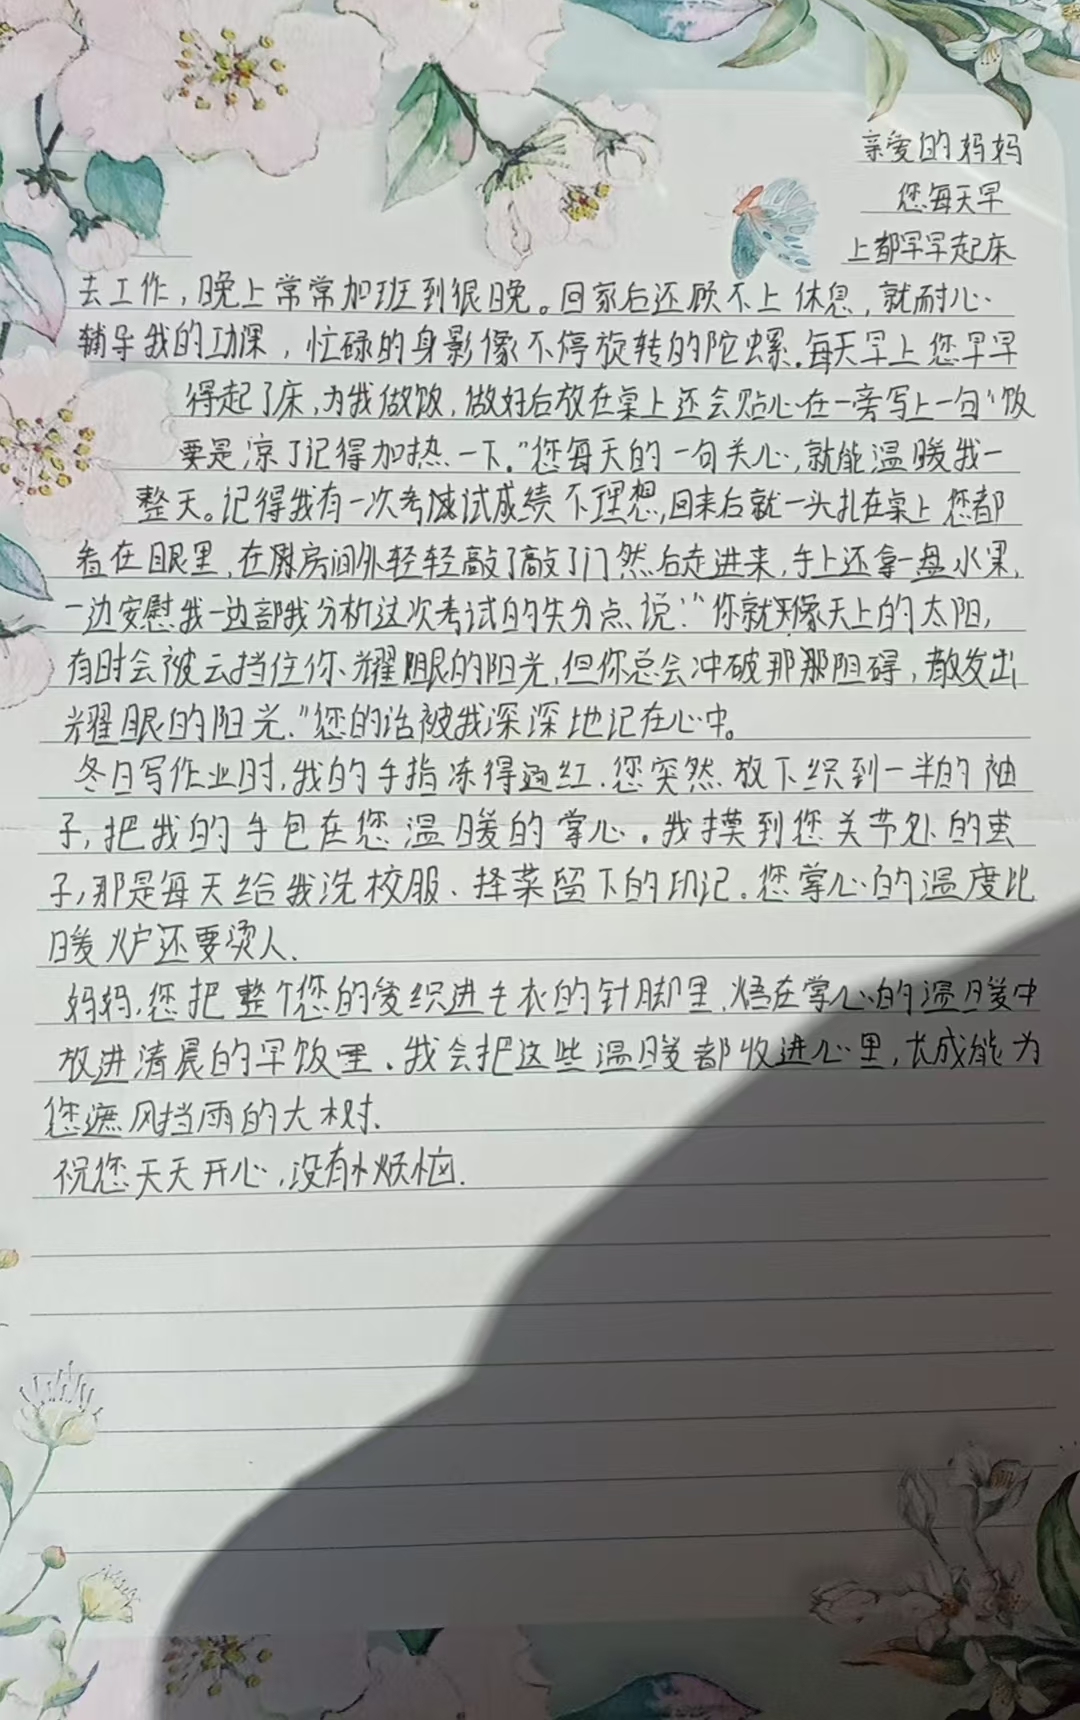 亲爱的妈妈
您每天早
上都早早起床
去工作，晚上常常加班到很晚。回家后还顾不上休息，就耐心
辅导我的功课，忙碌的身影像不停旋转的陀螺.每天早上您早早
得起了床,为我做饭,做好后放在桌上还会贴心在一旁写上一句“饭
要是凉了记得加热一下.”您每天的一句关心,就能温暖我一
整天。记得我有一次考试成绩不理想,回来后就一头扎在桌上您都
看在眼里,在厨房间外轻轻敲了敲了门然后走进来,手上还拿一盘水果,
一边安慰我一边部我分析这次考试的失分点说:“你就像天上的太阳,
有时会被云挡住你耀眼的阳光,但你总会冲破那那阻碍,散发出
耀眼的阳光.”您的话被我深深地记在心中。
冬日写作业时,我的手指冻得通红.您突然放下织到一半的袖
子,把我的手包在您温暖的掌心.我摸到您关节处的茧
子,那是每天给我洗校服、择菜留下的印记.您掌心的温度比
暖炉还要烫人.
妈妈,您把整个您的爱织进毛衣的针脚里,焐在掌心的温暖中
放进清晨的早饭里.我会把这些温暖都收进心里,长成能为
您遮风挡雨的大树.
祝您天天开心,没有烦恼.